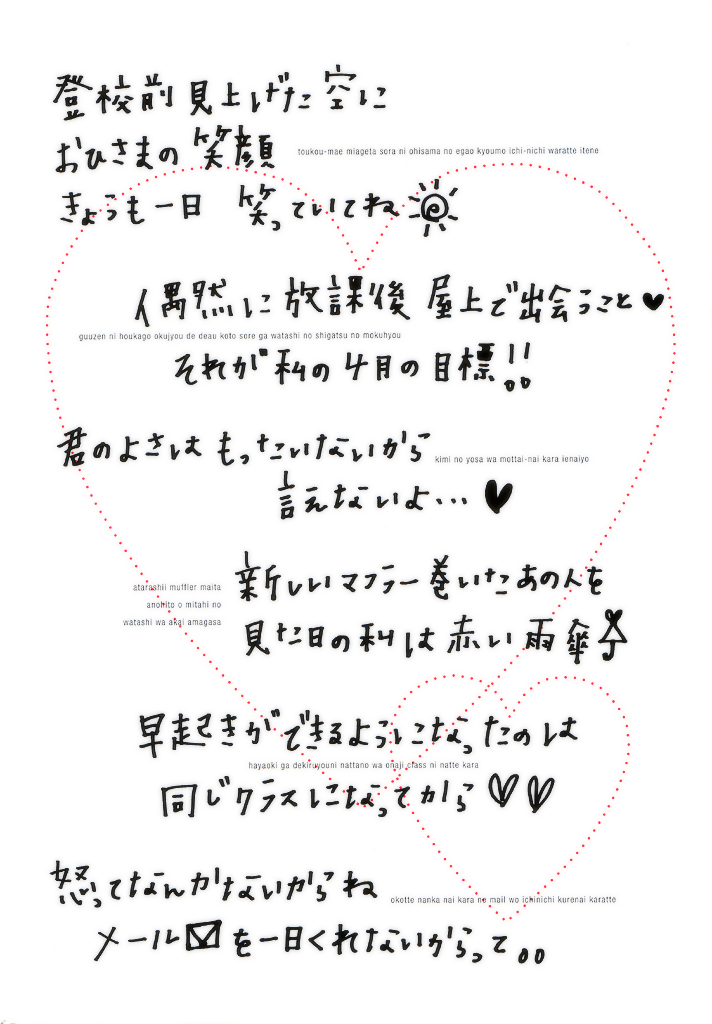 登校前見上げた空に
おひさまの笑顔
toukou-mae miageta sora ni ohisama no egao kyoumo ichi-nichi waratte itene
きょうも一日 笑っていてね
偶然に放課後 屋上で出会うこと♥
guuzen ni houkago okujyou de deau koto sore ga watashi no shigatsu no mokuhyou
それが私の4月の目標!!
君のよさは もったいないから
kimi no yosa wa mottai-nai kara ienaiyo
言えないよ…♥
新しいマフラー巻いたあの人を
atarashii muffler maita
anohito o mitahi no
watashi wa akai amagasa
見た日の私は赤い雨傘
早起きができるようになったのは
hayaoki ga dekiruyouni nattano wa onaji class ni natte kara
同じクラスになってから♡♡
怒ってなんかないからね
okotte nanka nai kara ne mail wo ichinichi kurenai karatte
メール✉を一日くれないからって。。